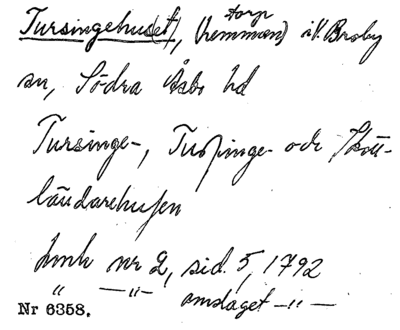 Tursingehus(et), (hemman) torp i V. Broby
sn, Södra Åsbo hd
Tursinge-, Tuspinge- och Skott-
ländarehusen
Lmh nr 2, sid. 5, 1792
" —"— omslaget —"—
Nr 6358.